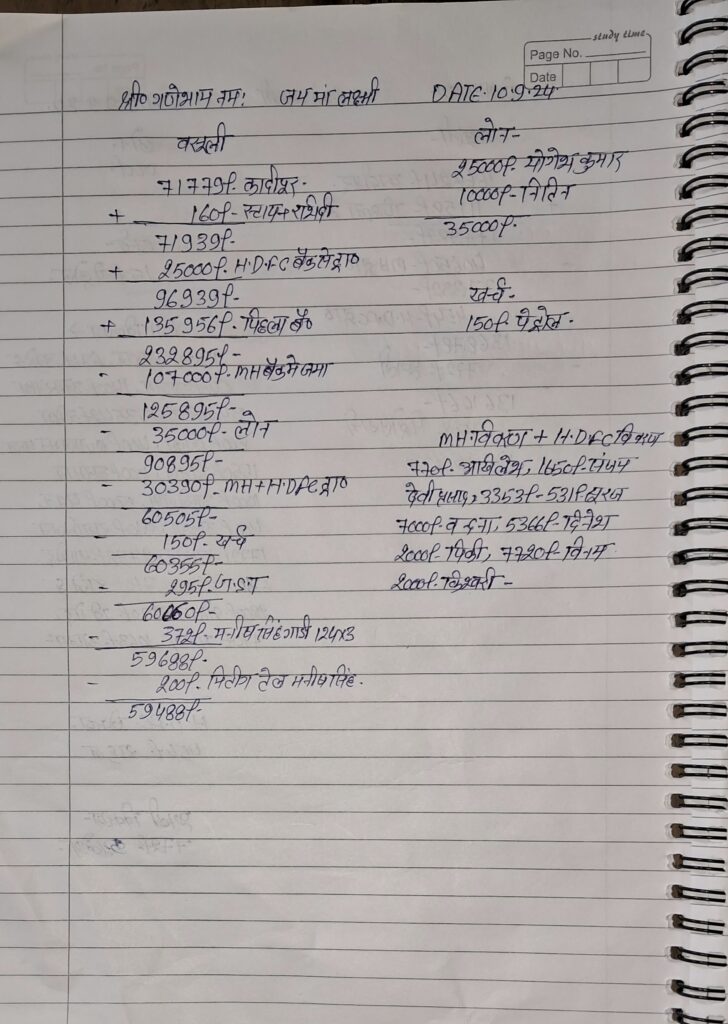 study time
Page No.
Date
श्री० गणेशाय नमः जय मां लक्ष्मी DATE.10.9.24
वसूली
71779/- कादीपुर.
+ 160/- स्टाम्प+रशिदी
71939/-
+ 25000/- H.D.F.C बैंक से प्रा०
96939/-
+ 135956/- पिछला बै०
232895/-
- 107000/- MH बैंक मे जमा
125895/-
- 35000/- लोन
90895/-
- 30390/- MH+H.DFC द्वा०
60505/-
- 150/- खर्च
60355/-
- 295/- G.S.T
60060/-
- 372/- मनीष सिंह गाडी 124x3
59688/-
- 200/- मिटींग तेल मनीष सिंह.
59488/-
लोन-
25000/- योगेश कुमार
10000/- नितिन
35000/-
खर्च-
150/- पेट्रोल.
MH.विवरण + H.D.F.C विवरण
770/- अखिलेश, 1650/- संजय
देवी प्रसाद, 3353/- 531/- सूरज
7000/- वन्दना, 5366/- दिनेश
2000/- पिंकी, 7720/- विनय
2000/- किश्वरी-